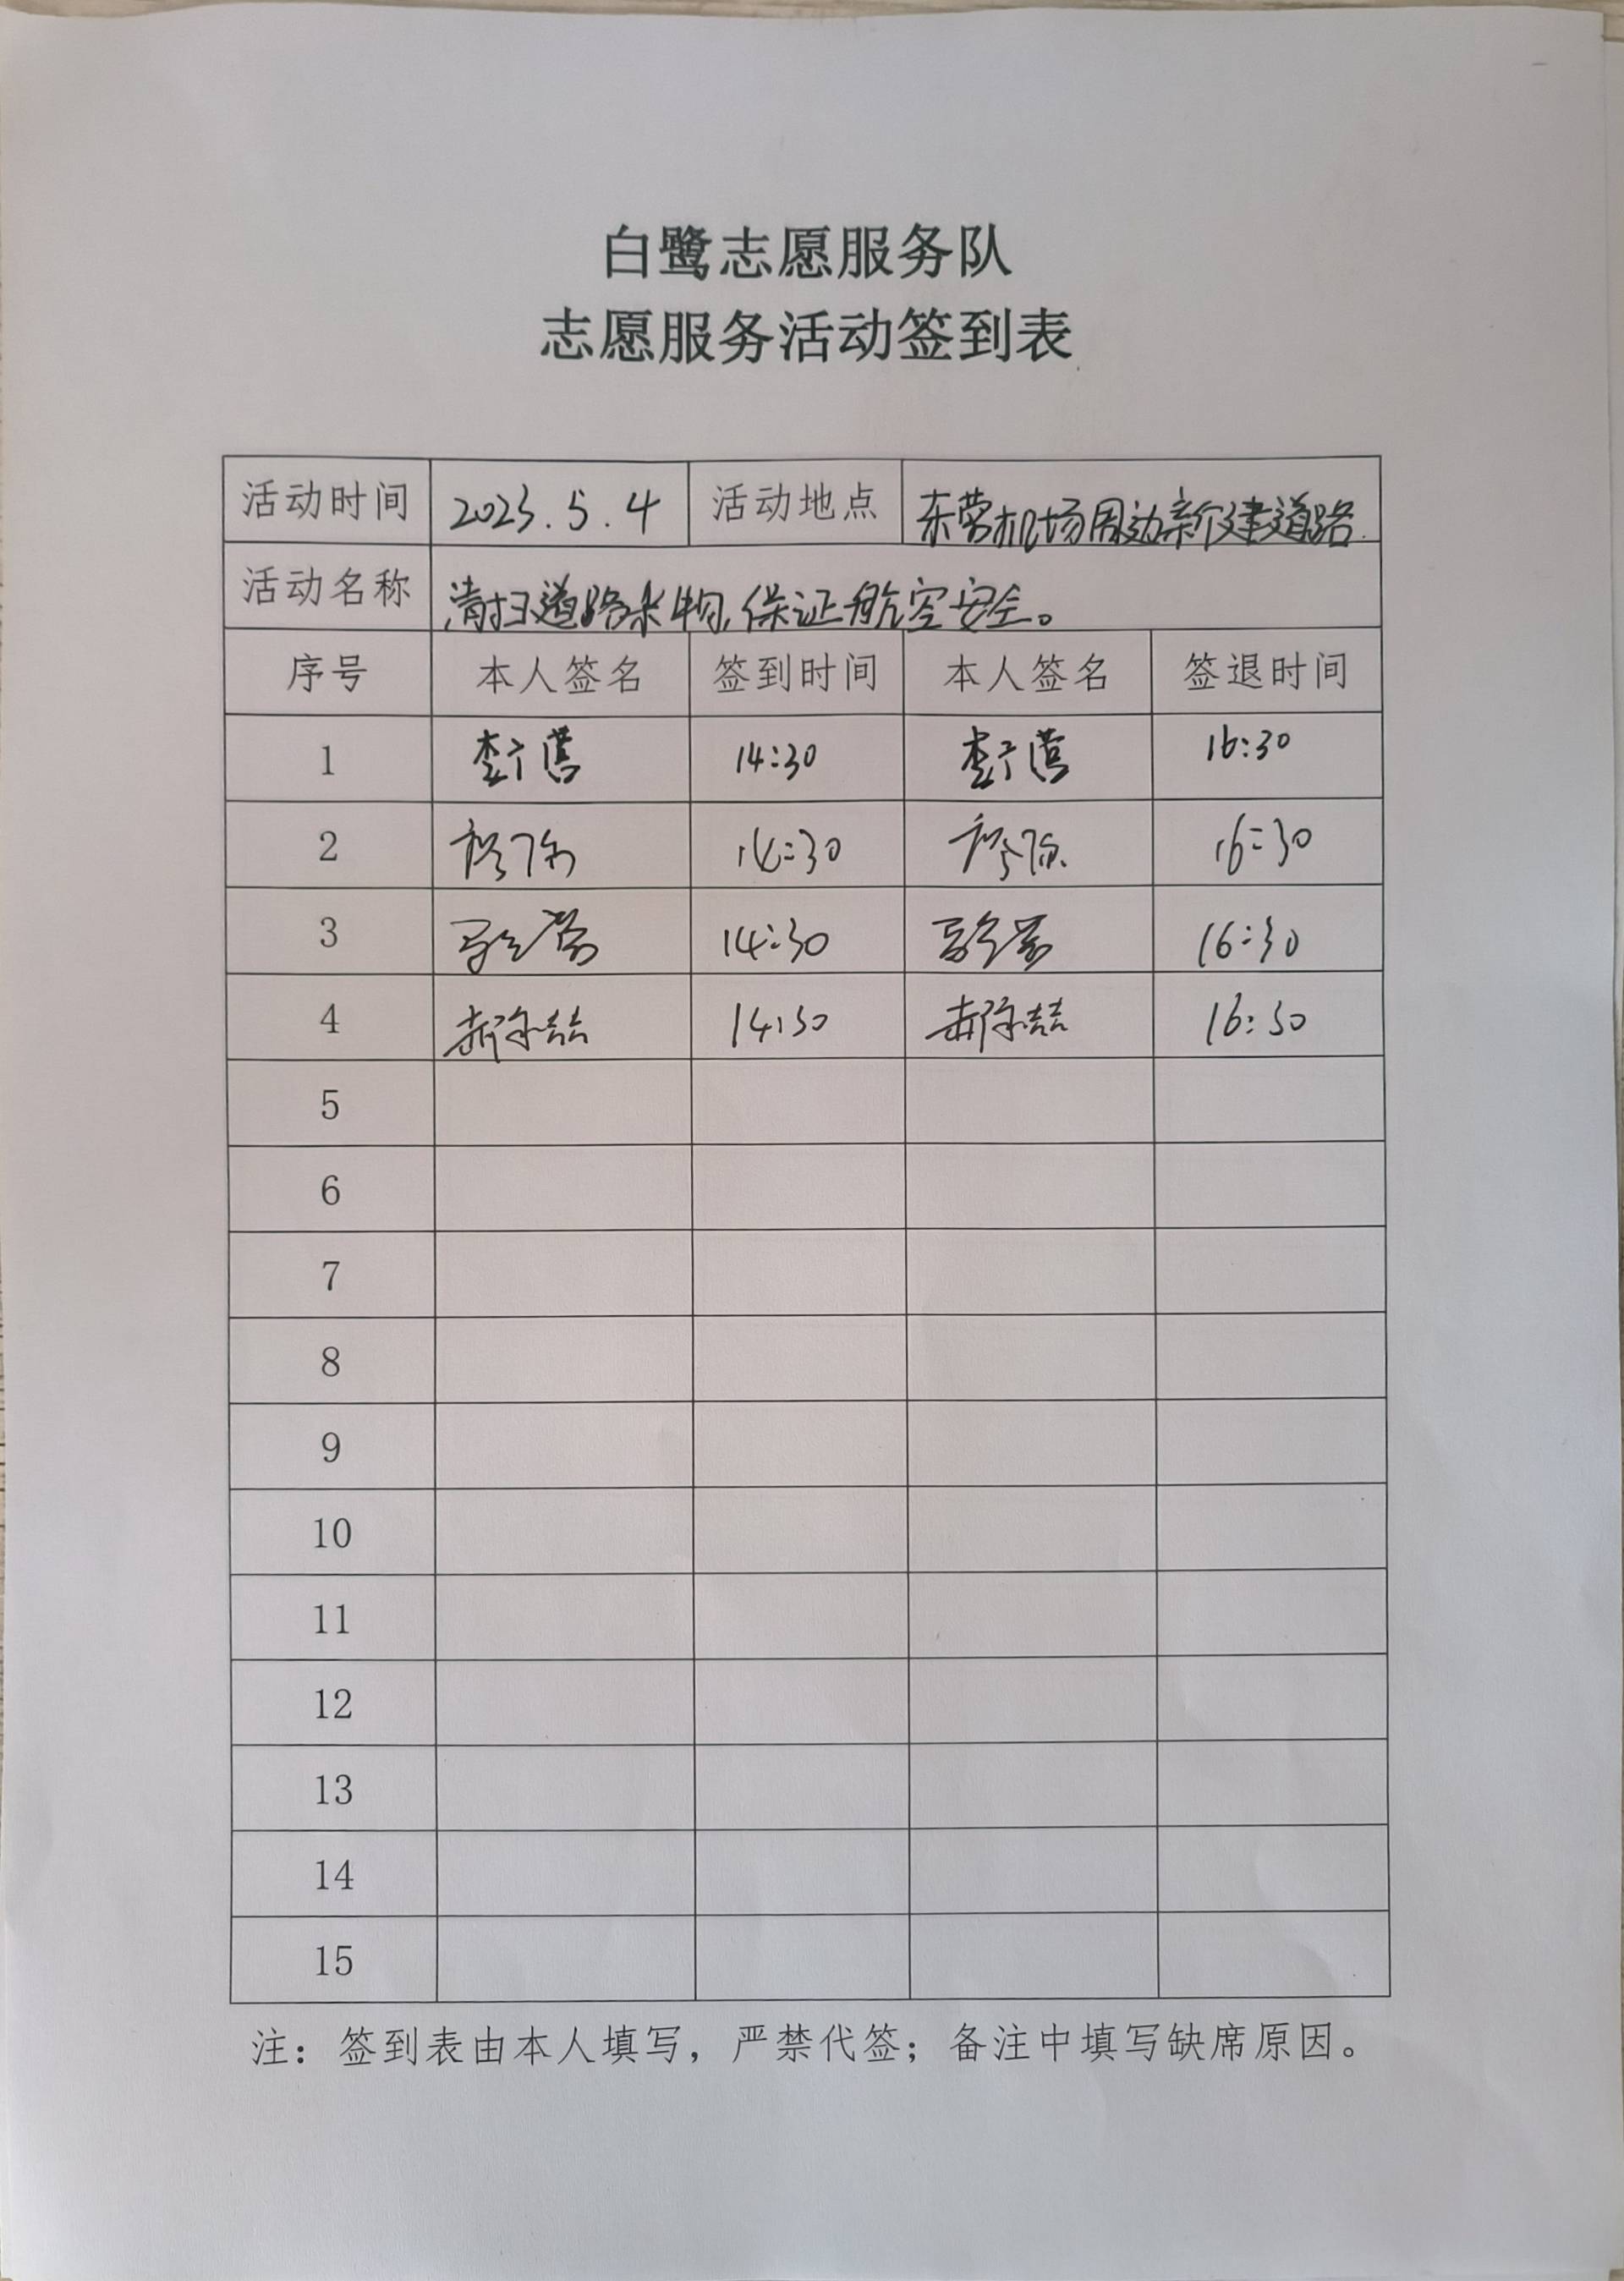 白鹭志愿服务队
志愿服务活动签到表
活动时间 2023.5.4 活动地点 东营机场周边新建道路
活动名称 清扫道路杂物,保证航空安全。
序号 本人签名 签到时间 本人签名 签退时间
1 14:30 16:30
2 14:30 16:30
3 14:30 16:30
4 14:30 16:30
5
6
7
8
9
10
11
12
13
14
15
注：签到表由本人填写，严禁代签；备注中填写缺席原因。